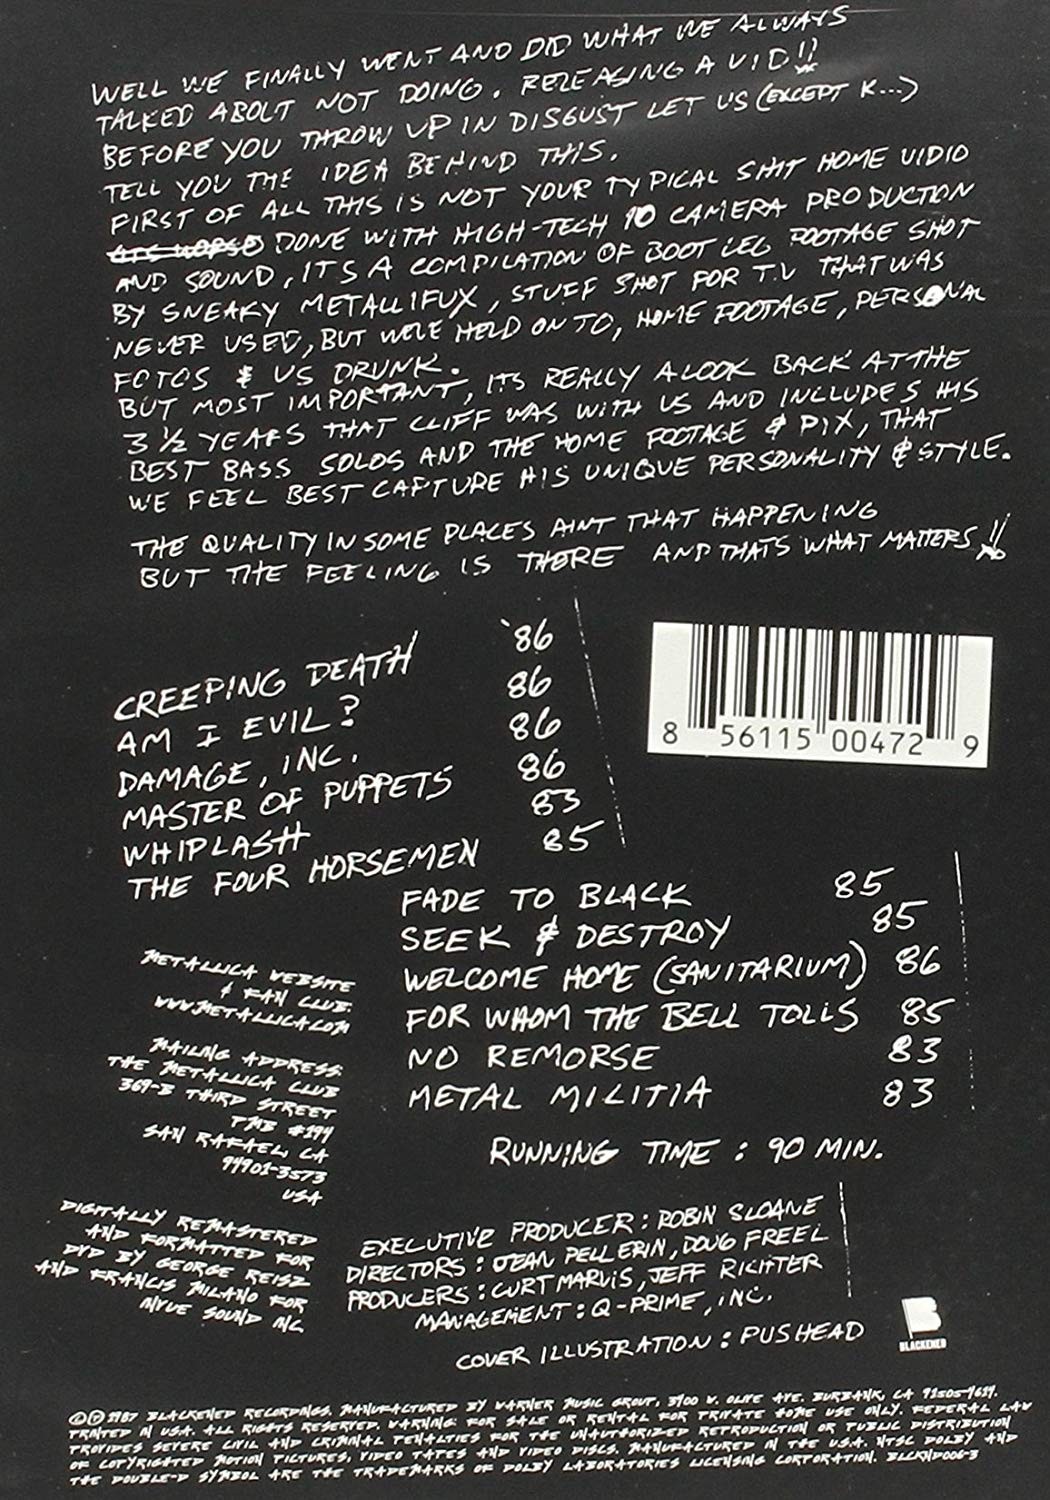 WELL WE FINALLY WENT AND DID WHAT WE ALWAYS
TALKED ABOUT NOT DOING. RELEASING A VID!!
BEFORE YOU THROW UP IN DISGUST LET US (EXCEPT K...)
TELL YOU THE IDEA BEHIND THIS.
FIRST OF ALL THIS IS NOT YOUR TYPICAL SHIT HOME VIDIO
ITS WORSE DONE WITH HIGH-TECH 10 CAMERA PRODUCTION
AND SOUND, ITS A COMPILATION OF BOOTLEG FOOTAGE SHOT
BY SNEAKY METALLIFUX, STUFF SHOT FOR T.V THAT WAS
NEVER USED, BUT WE'VE HELD ONTO, HOME FOOTAGE, PERSONAL
FOTOS & US DRUNK.
BUT MOST IMPORTANT, ITS REALLY A LOOK BACK AT THE
3 1/2 YEARS THAT CLIFF WAS WITH US AND INCLUDES HIS
BEST BASS SOLOS AND THE HOME FOOTAGE & PIX, THAT
WE FEEL BEST CAPTURE HIS UNIQUE PERSONALITY & STYLE.
THE QUALITY IN SOME PLACES AINT THAT HAPPENING
BUT THE FEELING IS THERE AND THATS WHAT MATTERS!!
CREEPING DEATH '86
AM I EVIL? 86
DAMAGE, INC. 86
MASTER OF PUPPETS 86
WHIPLASH 83
THE FOUR HORSEMEN 85
8 56115 00472 9
FADE TO BLACK 85
SEEK & DESTROY 85
WELCOME HOME (SANITARIUM) 86
FOR WHOM THE BELL TOLLS 85
NO REMORSE 83
METAL MILITIA 83
RUNNING TIME : 90 MIN.
METALLICA WEBSITE
& FAN CLUB:
WWW.METALLICA.COM
MAILING ADDRESS:
THE METALLICA CLUB
369-B THIRD STREET
PMB #194
SAN RAFAEL, CA
94901-3573
USA
DIGITALLY REMASTERED
AND FORMATTED FOR
DVD BY GEORGE REISZ
AND FRANCIS MILANO FOR
NVUE SOUND INC.
EXECUTIVE PRODUCER : ROBIN SLOANE
DIRECTORS : JEAN PELLERIN, DOUG FREEL
PRODUCERS : CURT MARVIS, JEFF RICHTER
MANAGEMENT : Q-PRIME, INC.
COVER ILLUSTRATION : PUSHEAD
B
BLACKENED
©℗ 1987 BLACKENED RECORDINGS. MANUFACTURED BY WARNER MUSIC GROUP, 3400 W. OLIVE AVE. BURBANK, CA 91505-4614.
PRINTED IN USA. ALL RIGHTS RESERVED. WARNING: FOR SALE OR RENTAL FOR PRIVATE HOME USE ONLY. FEDERAL LAW
PROVIDES SEVERE CIVIL AND CRIMINAL PENALTIES FOR THE UNAUTHORIZED REPRODUCTION OR PUBLIC DISTRIBUTION
OF COPYRIGHTED MOTION PICTURES, VIDEO TAPES AND VIDEO DISCS. MANUFACTURED IN THE U.S.A. NTSC DOLBY AND
THE DOUBLE-D SYMBOL ARE THE TRADEMARKS OF DOLBY LABORATORIES LICENSING CORPORATION. BLCKND006-3